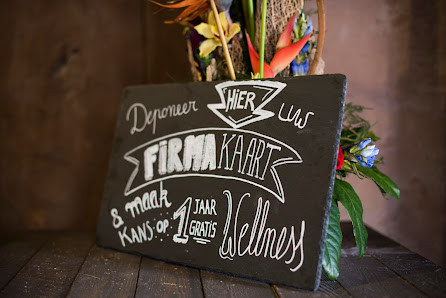 Deponeer HIER uw
FIRMAKAART
& maak
KANS OP 1 JAAR GRATIS Wellness